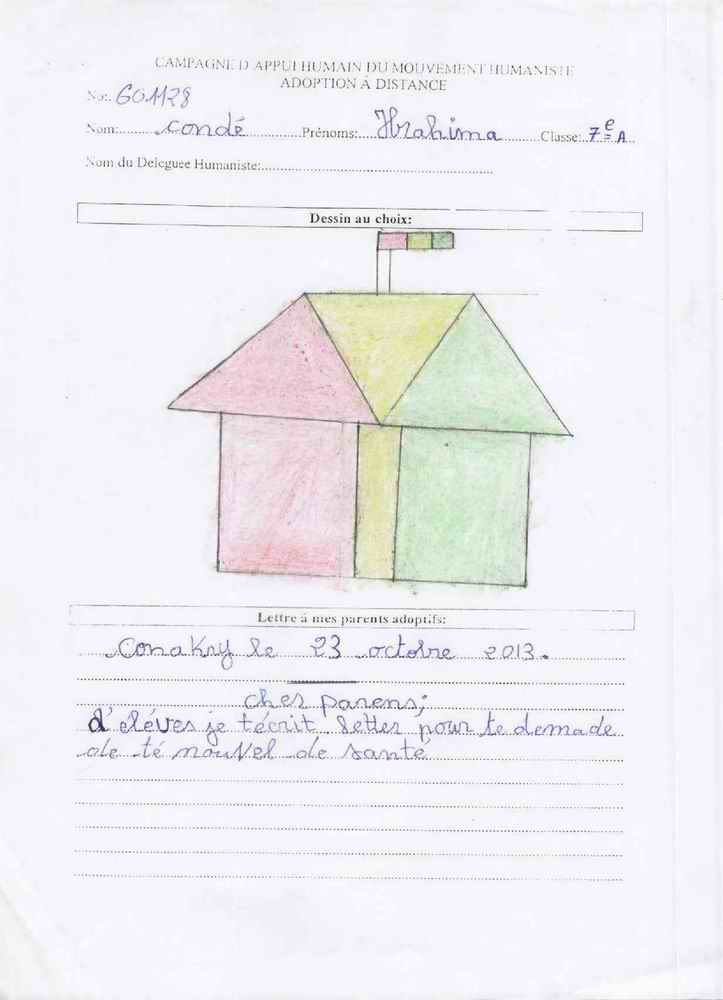 CAMPAGNE D APPUI HUMAIN DU MOUVEMENT HUMANISTE
ADOPTION À DISTANCE
No: G01128
Nom: Condé Prénoms: Ibrahima Classe: 7e A
Nom du Deleguee Humaniste:
Dessin au choix:
Lettre á mes parents adoptifs:
Conakry le 23 octobre 2013.
cher parens;
d'eléves je técrit letter pour te demade
de té nouvel de sante